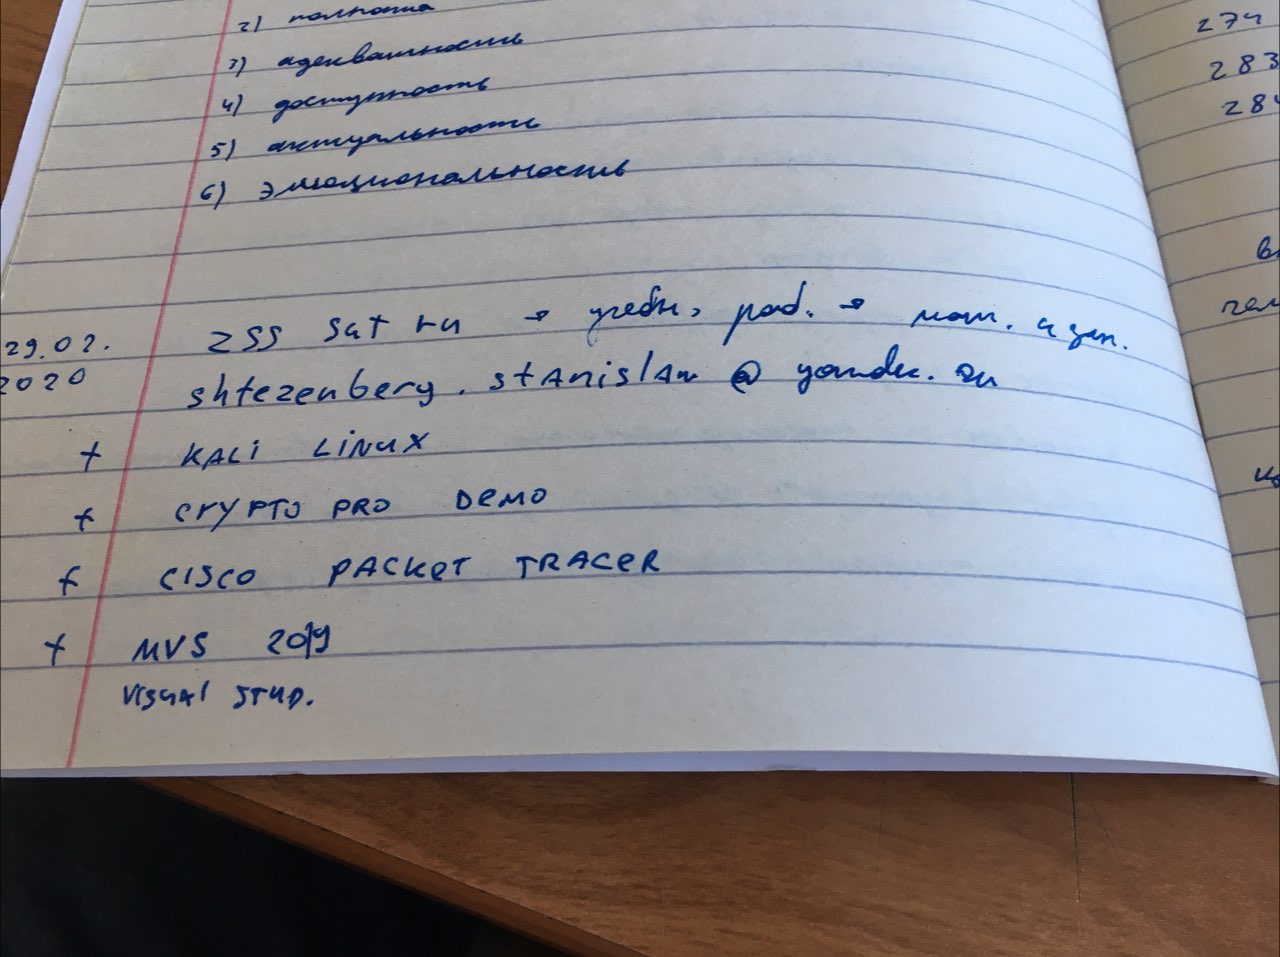 2) полнота
3) адекватность
4) доступность
5) актуальность
6) эмоциональность
29.02.2020
zss sut ru → учебн. раб. → мат. и зан.
shtezenberg.stanislaw@yandex.ru
+ KALI LINUX
+ CRYPTO PRO DEMO
+ CISCO PACKET TRACER
+ MVS 2019
VISUAL STUD.
274
283
284